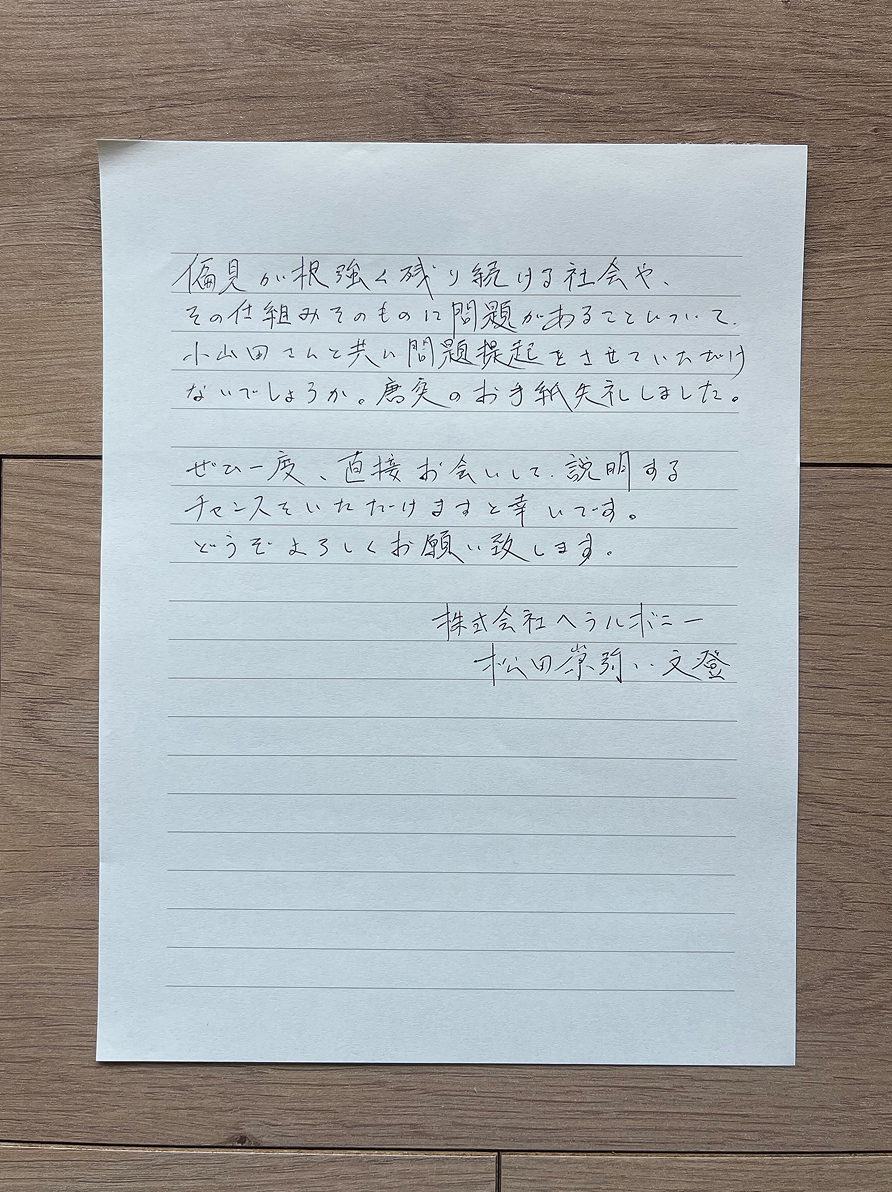 偏見が根強く残り続ける社会や、
その仕組みそのものに問題があることについて、
小山田さんと共に問題提起をさせていただけ
ないでしょうか。唐突のお手紙失礼しました。
ぜひ一度、直接お会いして、説明する
チャンスをいただけますと幸いです。
どうぞよろしくお願い致します。
株式会社ヘラルボニー
松田崇弥・文登